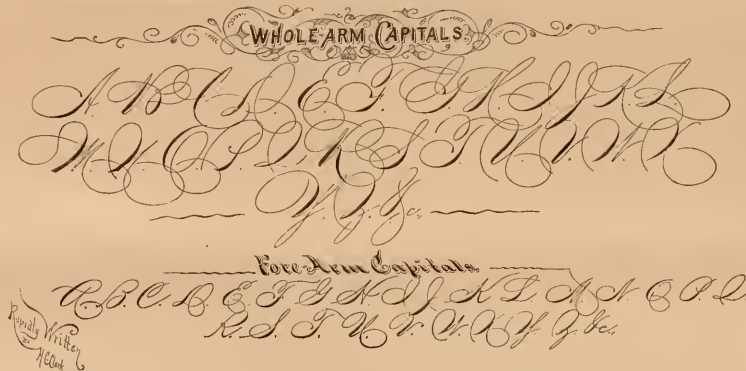 WHOLE-ARM CAPITALS.
A. B C D. E. F. G H. I J K L
M. N. O. P Q. R S T. U. V. W. X
Y. Z. &c.
Fore-Arm Capitals
A. B. C. D. E F G H. I J K L M N. O P. Q
R. S. T. U V. W. X Y. Z. &c.
Rapidly Written
BY
H.C. Clark